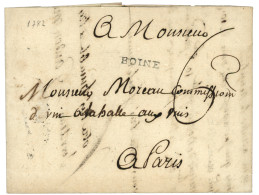 1782
A Monsieur
BOINE
Monsieur Moreau Commission
de vin a la halle aux vins
A Paris